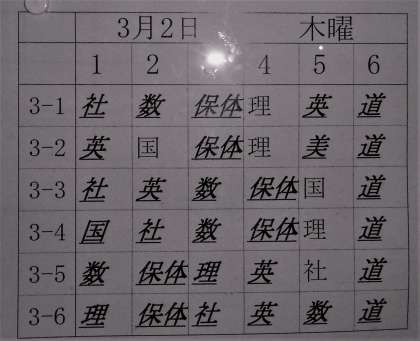 3月2日 木曜
1 2 4 5 6
3-1 社 数 保体 理 英 道
3-2 英 国 保体 理 美 道
3-3 社 英 数 保体 国 道
3-4 国 社 数 保体 理 道
3-5 数 保体 理 英 社 道
3-6 理 保体 社 英 数 道